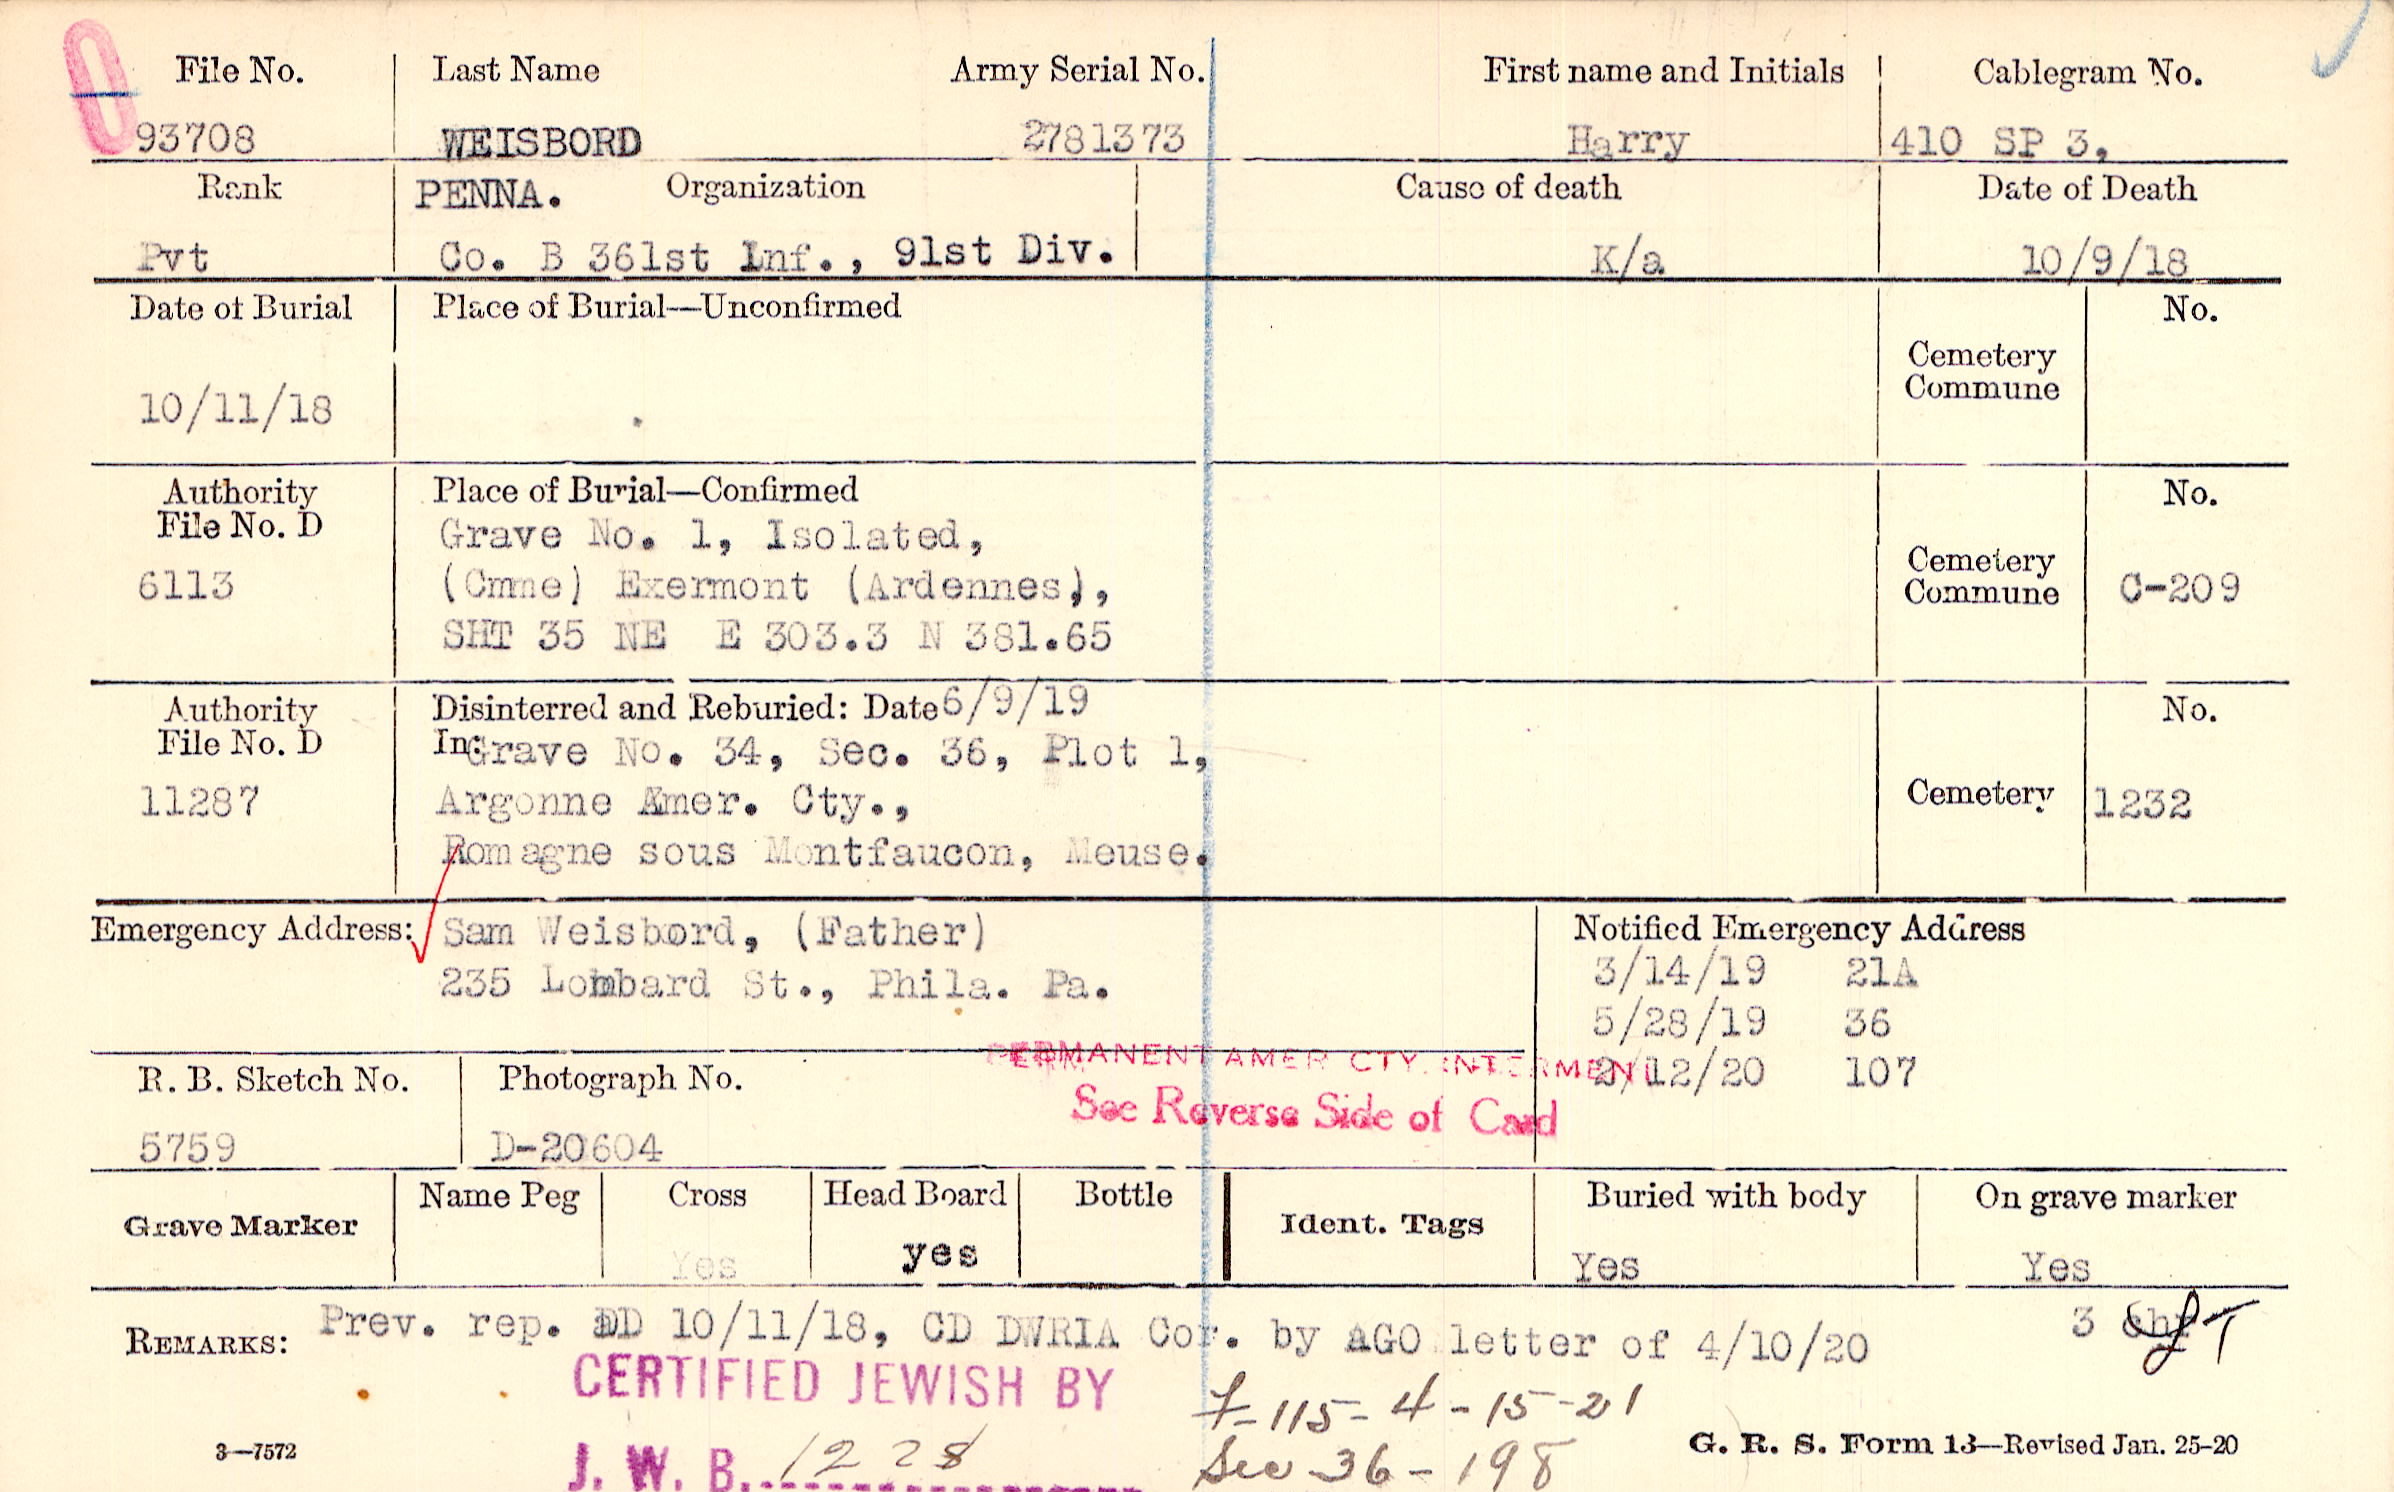 File No. Last Name Army Serial No. First name and Initials Cablegram No.
93708 WEISBORD 2781373 Harry 410 SP 3,
Rank PENNA. Organization Cause of death Date of Death
Pvt Co. B 361st Inf., 91st Div. K/a 10/9/18
Date of Burial Place of Burial—Unconfirmed No.
Cemetery
Commune
10/11/18
Authority Place of Burial—Confirmed No.
File No. D Grave No. 1, Isolated,
Cemetery
6113 (Cmne) Exermont (Ardennes), Commune C-209
SHT 35 NE E 303.3 N 381.65
Authority Disinterred and Reburied: Date 6/9/19 No.
File No. D In: Grave No. 34, Sec. 36, Plot 1,
11287 Argonne Amer. Cty., Cemetery 1232
Romagne sous Montfaucon, Meuse.
Emergency Address: Sam Weisbord, (Father) Notified Emergency Address
235 Lombard St., Phila. Pa. 3/14/19 21A
5/28/19 36
PERMANENT AMER CTY. INTERMENT
2/12/20 107
R. B. Sketch No. Photograph No.
See Reverse Side of Card
5759 D-20604
Grave Marker Name Peg Cross Head Board Bottle Ident. Tags Buried with body On grave marker
Yes yes Yes Yes
REMARKS: Prev. rep. DD 10/11/18, CD DWRIA Cor. by AGO letter of 4/10/20 3
CERTIFIED JEWISH BY
7-115-4-15-21
J. W. B. 1228
Sec 36-198
3—7572 G. R. S. Form 13—Revised Jan. 25-20